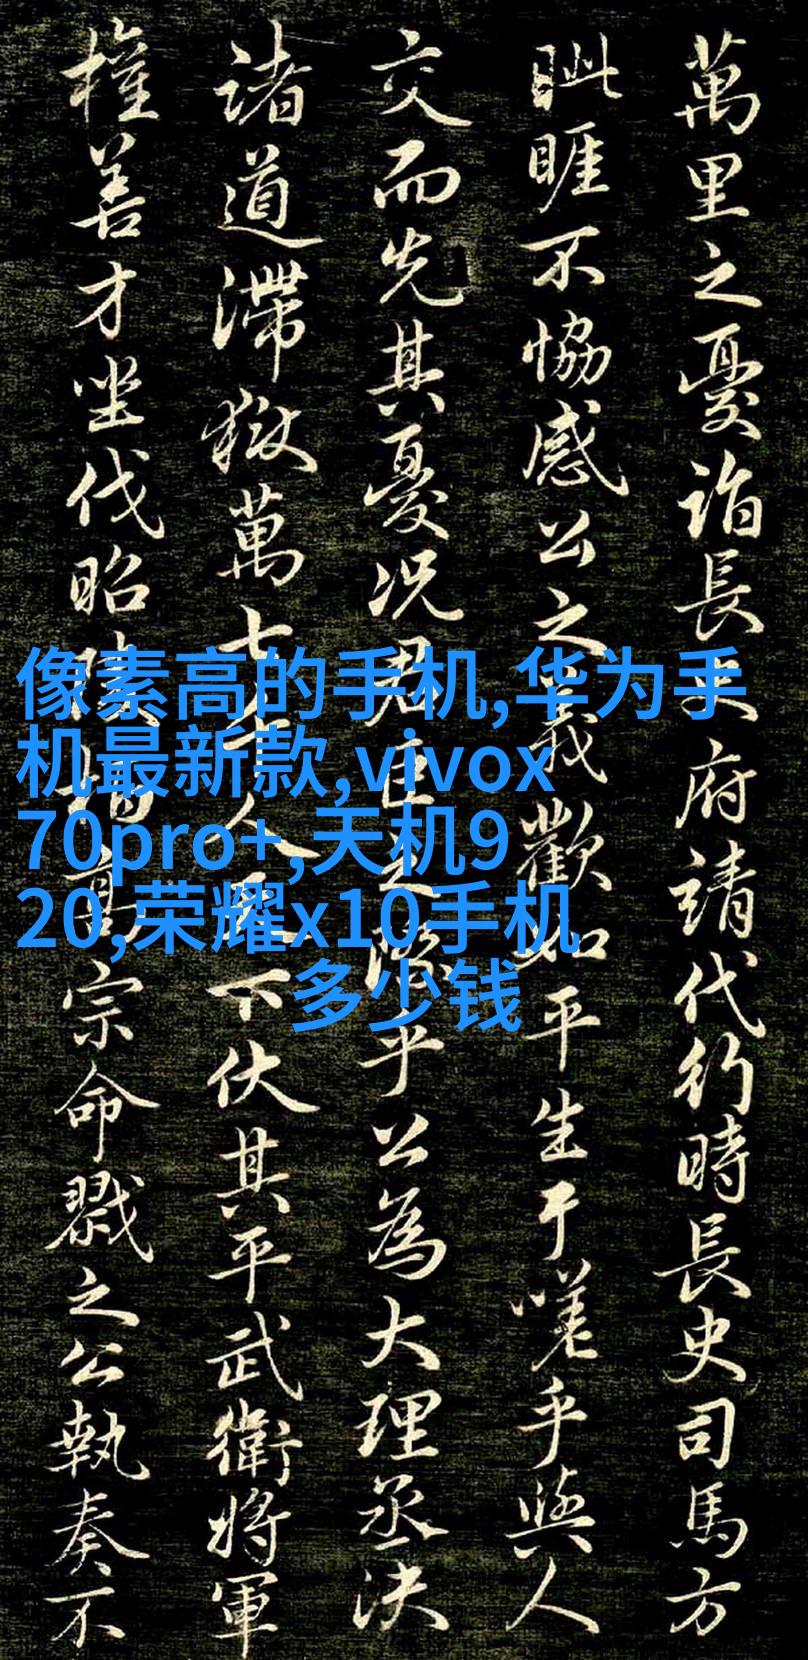 萬里之憂詣長史府請代行時長史司馬方
眦睚不恊感公之義歡如平生于嗟乎與人
交而先其憂況君臣之際乎公為大理丞決
諸道滯獄萬七千人天下伏其平武衛將軍
權善才坐伐昭陵栢高宗命戮之公執奏不
像素高的手机,华为手
机最新款,vivox
70pro+,天机9
20,荣耀x10手机
多少钱